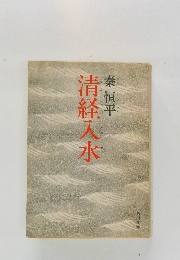 秦恒平
清経入水